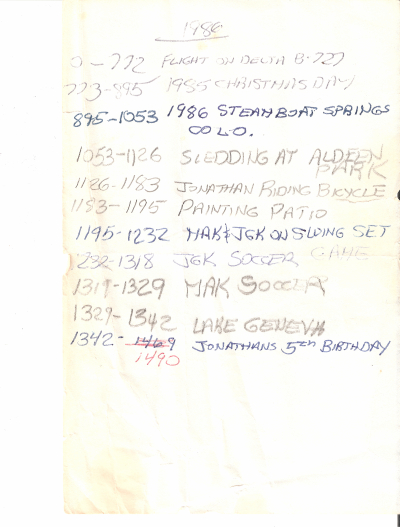 1986
0-772 FLIGHT ON DELTA B-727
773-895 1985 CHRISTMAS DAY
895-1053 1986 STEAMBOAT SPRINGS
COLO.
1053-1126 SLEDDING AT ALDEEN
PARK
1126-1183 JONATHAN RIDING BICYCLE
1183-1195 PAINTING PATIO
1195-1232 MAK & JGK ON SWING SET
1232-1318 JGK SOCCER GAME
1319-1329 MAK SOCCER
1329-1342 LAKE GENEVA
1342-1469 JONATHANS 5th BIRTHDAY
1490